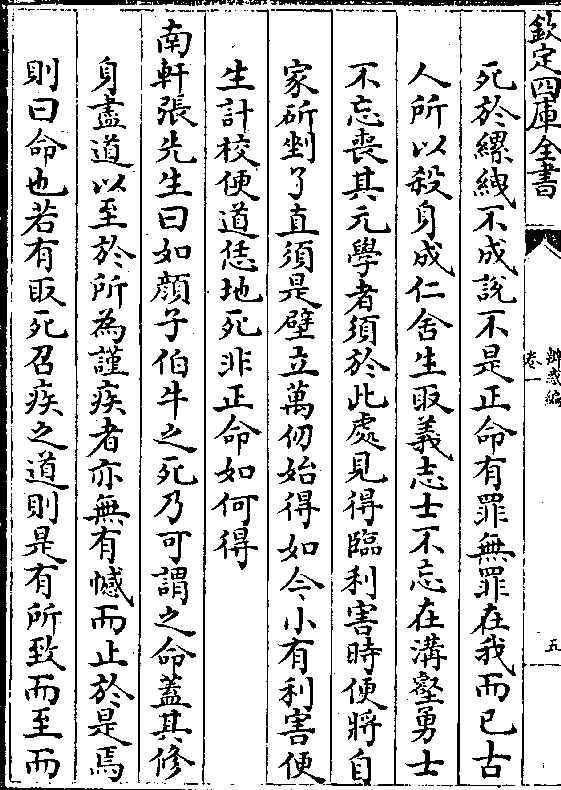 欽定四庫全書
辨惑編
卷一
五
死於縲絏不成說不是正命有罪無罪在我而已古
人所以殺身成仁舍生取義志士不忘在溝壑勇士
不忘喪其元學者須於此處見得臨利害時便將自
家斫剉了直須是壁立萬仞始得如今小有利害便
生計校便道恁地死非正命如何得
南軒張先生曰如顔子伯牛之死乃可謂之命蓋其修
身盡道以至於所為謹疾者亦無有憾而止於是焉
則曰命也若有取死召疾之道則是有所致而至而